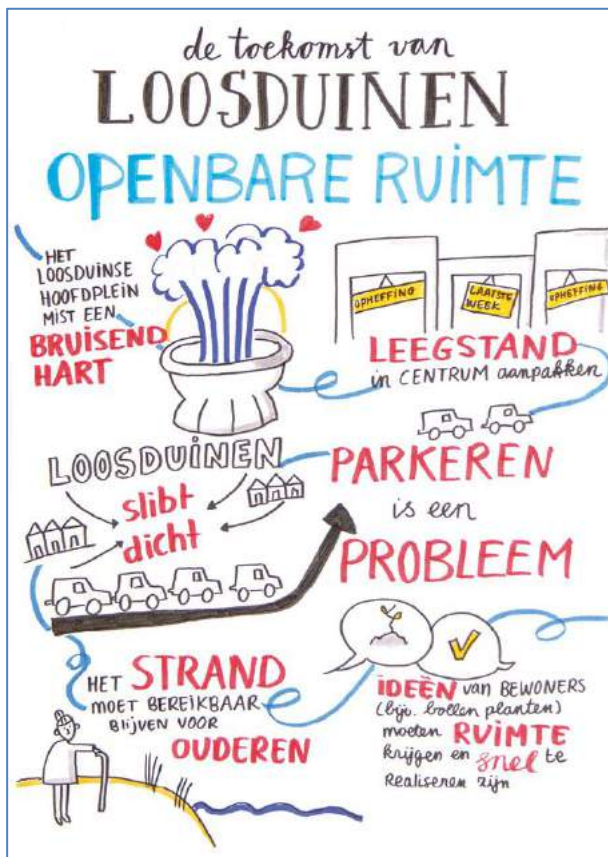 de toekomst van
LOOSDUINEN
OPENBARE RUIMTE
HET
LOOSDUINSE
HOOFDPLEIN
MIST EEN
BRUISEND
HART
OPHEFFING
LAATSTE
WEEK
OPHEFFING
LEEGSTAND
in CENTRUM aanpakken
LOOSDUINEN
slibt
dicht
PARKEREN
is een
PROBLEEM
HET STRAND
MOET BEREIKBAAR
BLIJVEN VOOR
OUDEREN
IDEËN van BEWONERS
(bijv. bollen planten)
moeten RUIMTE
krijgen en snel te
Realiseren zijn